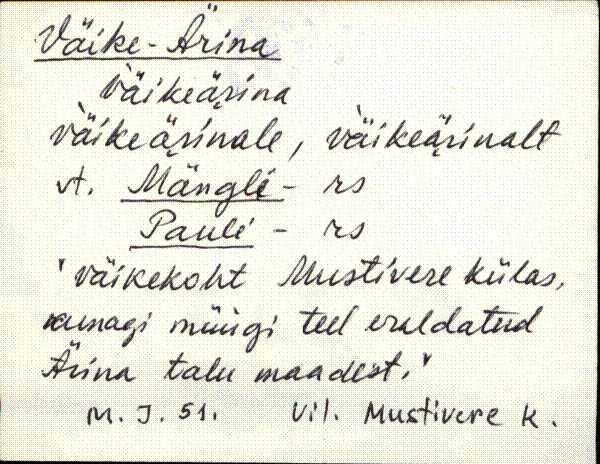 Väike-Ärina
v̀äikeärina
v̀äikeärinale, v̀äikeärinalt
vt. Mängli - rs
Pauli - rs
"väikekoht Mustivere külas,
kunagi müügi teel eraldatud
Ärina talu maadest."
M. J. 51. Vil. Mustivere k.